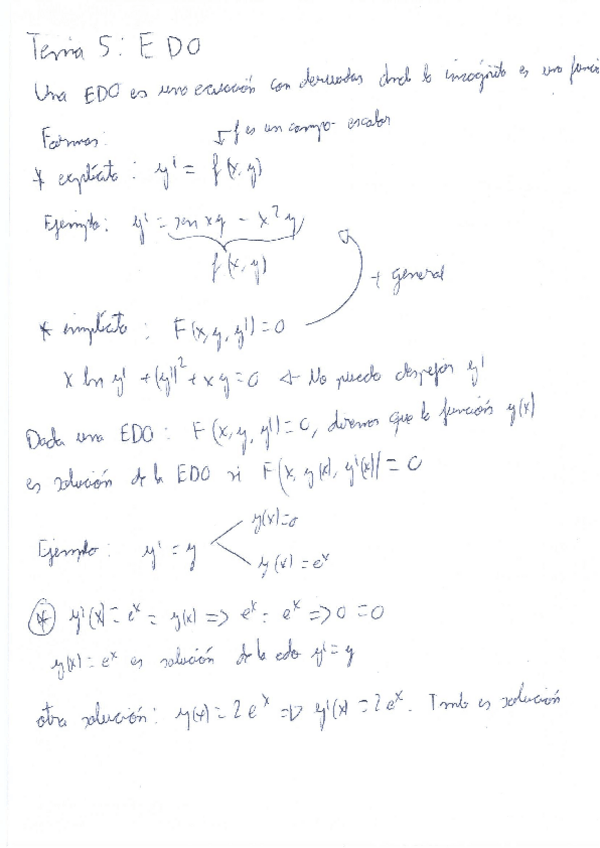 Tema 5: EDO
Una EDO es una ecuación con derivadas dond la incógnita es una funci
Formas:
f es un campo escalar
* explícita: y' = f(x,y)
Ejemplo: y' = sen xy - x²y
f(x,y)
+ general
* implícita: F(x,y,y') = 0
x ln y' + (y')² + xy = 0 ← No puedo despejar y'
Dada una EDO: F(x,y,y') = 0, diremos que la función y(x)
es solución de la EDO si F(x, y(x), y'(x)) = 0
Ejemplo: y' = y
y(x)=0
y(x) = eˣ
* y'(x) = eˣ = y(x) => eˣ = eˣ => 0 = 0
y(x) = eˣ es solución de la edo y' = y
otra solución: y(x) = 2eˣ => y'(x) = 2eˣ. Tmb es solución